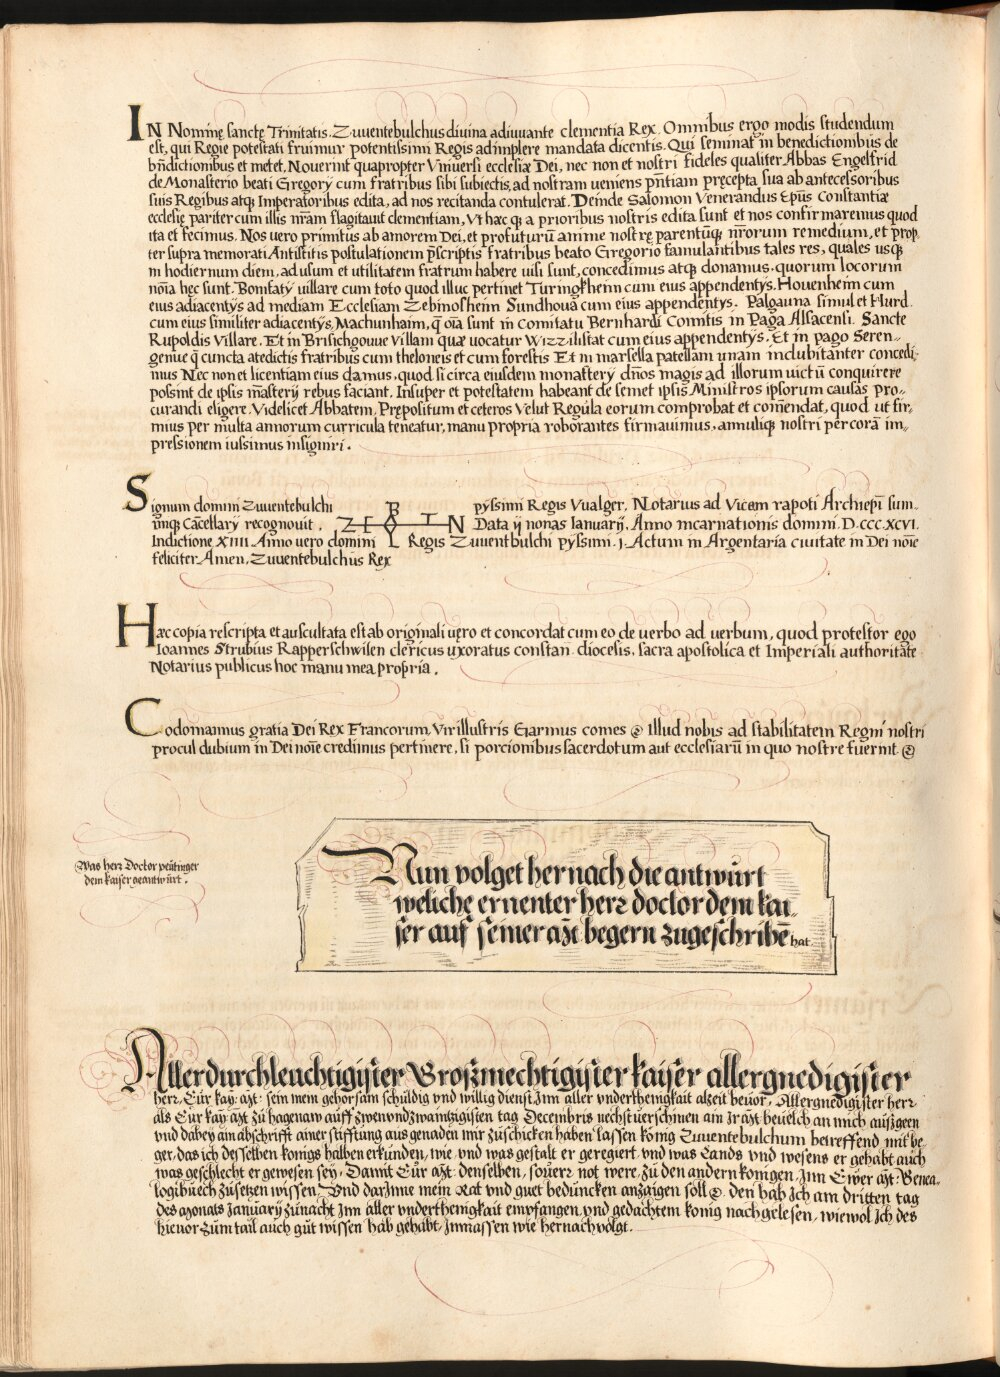 IN Nominę sanctę Trinitatis. Zuuentebulchus diuina adiuuante clementia Rex. Omnibus ergo modis studendum
est, qui Regie potestati fruimur potentissimi Regis adimplere mandata dicentis. Qui seminat in benedictionibus de
bñdictionibus et metet. Nouerint quapropter Vniuersi ecclesiæ Dei, nec non et nostri fideles qualiter Abbas Engelfrid
de Monasterio beati Gregorÿ cum fratribus sibi subiectis, ad nostram ueniens pñtiam pręcepta sua ab antecessoribus
suis Regibus atq; Imperatoribus edita, ad nos recitanda contulerat. Deinde Salomon Venerandus Ep̃us Constantiæ
ecclesię pariter cum illis nr̃am flagitauit clementiam, Vt hæc q; a prioribus nostris edita sunt et nos confirmaremus quod
ita et fecimus. Nos uero primitus ab amorem Dei, et profuturũ animę nostrę parentũq; nr̃orum remedium, et prop-
ter supra memorati Antistitis postulationem p̃scriptis fratribus beato Gregorio famulantibus tales res, quales usq;
in hodiernum diem, ad usum et utilitatem fratrum habere uisi sunt, concedimus atq; donamus. quorum locorum
nõia hęc sunt. Bonifatÿ uillare cum toto quod illuc pertinet Turingkheim cum eius appendentÿs. Houenheim cum
eius adiacentÿs ad mediam Ecclesiam Zebinosheim Sundhoua cum eius appendentÿs. Palgauna simul et Hurd.
cum eius similiter adiacentÿs, Machunhaim, q̃ oĩa sunt in Comitatu Bernhardi Comitis in Paga Alsacensi. Sancte
Rupoldis Villare. Et in Brisichgouue Villam quæ uocatur Wizzilistat cum eius appendentÿs. Et in pago Seren-
geniue q̃ cuncta atedictis fratribus cum theloneis et cum forestis Et in marsella patellam unam indubitanter concedi-
mus Nec non et licentiam eius damus, quod si circa eiusdem monasterÿ dños magis ad illorum uictũ conquirere
possint de ipsis mãsterÿ rebus faciant. Insuper et potestatem habeant de semet ipsis Ministros ipsorum causas pro-
curandi eligere. Videlicet Abbatem, Prępositum et ceteros Velut Regula eorum comprobat et com̃endat, quod ut fir-
mius per multa annorum curricula teneatur, manu propria roborantes firmauimus, annuliq; nostri per corã im-
pressionem iussimus insigniri.
Signum domini Zuuentebulchi pÿssimi Regis Vualger. Notarius ad Vicem rapoti Archiepĩ sum-
miq; Cãcellarÿ recognouit. Data ÿ nonas Ianuarÿ. Anno incarnationis domini. D.CCC.XCVI.
Indictione XIIII. Anno uero domini Regis Zuuentbulchi pÿssimi. j. Actum in Argentaria ciuitate in Dei nõie
feliciter Amen. Zuuentebulchus Rex
Hæc copia rescripta et auscultata est ab originali uęro et concordat cum eo de uerbo ad uerbum, quod protestor ego
Ioannes Strubius Rapperschwilen clericus uxoratus constan. diocesis, sacra apostolica et Imperiali authoritate
Notarius publicus hoc manu mea propria.
Codomannus gratia Dei Rex Francorum, Vir illustris Garmus comes illud nobis ad stabilitatem Regni nostri
procul dubium in Dei nõie credimus pertinere, si porcionibus sacerdotum aut ecclesiarũ in quo nostre fuerint.
Was herr Doctor peutinger
dem kaiser geantwürt.
Nun volget hernach die antwürt
weliche ernenter herr doctor dem kai-
ser auf seiner mt begern zugeschribẽ hat
Allerdurchleuchtigister Großmechtigister kaiser allergnedigister
herr, Eür kay: mt: sein mein gehorsam schuldig vnd willig dienst Inn aller vnderthenigkait alzeit beuor, Allergnedigister herr
als Eür kay: mt: zu hagenaw auff zwenvndzwaintzigisten tag Decembris nechstuerschinen ain Ir mt beuelch an mich außgeen
vnd dabey ain abschrifft ainer stifftung aus genaden mir zuschicken haben lassen konig Zuuentebulchum betreffend mit be-
ger, das ich desselben konigs halben erkunden, wie vnd was gestalt er geregiert vnd was Lands vnd wesens er gehabt auch
was geschlecht er gewesen sey, Damit Eür mt: denselben, souerr not were, zu den andern konigen, Inn Ewer mt: Genea-
logibuech zusetzen wissen. Vnd darInne mein Rat vnd guet beduncken anzaigen soll. den hab Ich am dritten tag
des monats Januarÿ zunacht Inn aller vnderthenigkait empfangen vnd gedachtem konig nachgelesen, wiewol Ich des
hieuor zum tail auch gut wissen hab gehabt, Inmassen wie hernachvolgt.